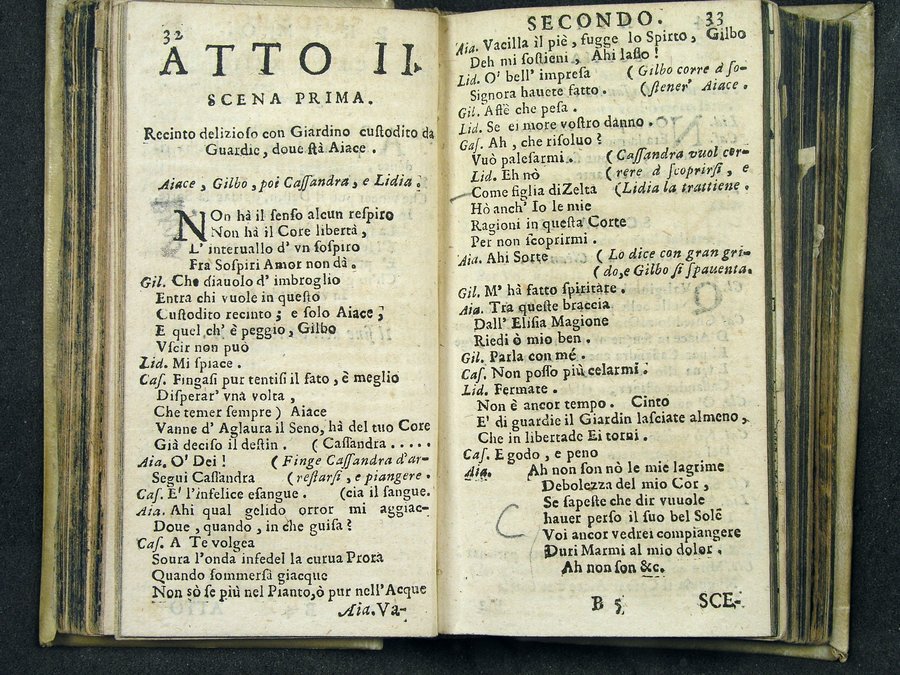 32
ATTO II.
SCENA PRIMA.
Recinto delizioſo con Giardino cuſtodito da
Guardie, doue ſtà Aiace.
Aiace, Gilbo, poi Caſſandra, e Lidia.
NOn hà il ſenſo alcun reſpiro
Non hà il Core libertà,
L' interuallo d' vn ſoſpiro
Fra Soſpiri Amor non dà.
Gil. Che diauolo d' imbroglio
Entra chi vuole in queſto
Cuſtodito recinto; e ſolo Aiace,
E quel ch' è peggio, Gilbo
Vſcir non può
Lid. Mi ſpiace.
Caſ. Fingaſi pur tentiſi il fato, è meglio
Diſperar' vna volta,
Che temer ſempre) Aiace
Vanne d' Aglaura il Seno, hà del tuo Core
Già deciſo il deſtin. (Caſſandra.....
Aia. O' Dei! (Finge Caſſandra d'ar-
Segui Caſſandra (reſtarſi, e piangere.
Caſ. E' l'infelice eſangue. (cia il ſangue.
Aia. Ahi qual gelido orror mi aggiac-
Doue, quando, in che guiſa?
Caſ. A Te volgea
Soura l'onda infedel la curua Prora
Quando ſommerſa giacque
Non sò ſe più nel Pianto, ò pur nell'Acque
Aia. Va-
SECONDO. 33
Aia. Vacilla il piè, fugge lo Spirto, Gilbo
Deh mi ſoſtieni, Ahi laſſo!
Lid. O' bell' impreſa (Gilbo corre à ſo-
Signora hauete fatto. (ſtener' Aiace.
Gil. Aſſè che peſa.
Lid. Se ei more voſtro danno.
Caſ. Ah, che riſoluo?
Vuò paleſarmi. (Caſſandra vuol cor-
Lid. Eh nò (rere à ſcoprirſi, e
Come figlia diZelta (Lidia la trattiene.
Hò anch' Io le mie
Ragioni in queſta Corte
Per non ſcoprirmi.
Aia. Ahi Sorte (Lo dice con gran gri-
(do, e Gilbo ſi ſpauenta.
Gil. M' hà fatto ſpiritare.
Aia. Tra queſte braccia
Dall' Eliſia Magione
Riedi ò mio ben.
Gil. Parla con mé.
Caſ. Non poſſo più celarmi.
Lid. Fermate.
Non è ancor tempo. Cinto
E' di guardie il Giardin laſciate almeno,
Che in libertade Ei torni.
Caſ. E godo, e peno
Aia. Ah non ſon nò le mie lagrime
Debolezza del mio Cor,
Se ſapeſte che dir vuuole
hauer perſo il ſuo bel Sole
Voi ancor vedrei compiangere
Duri Marmi al mio dolor.
Ah non ſon &c.
B 5 SCE-